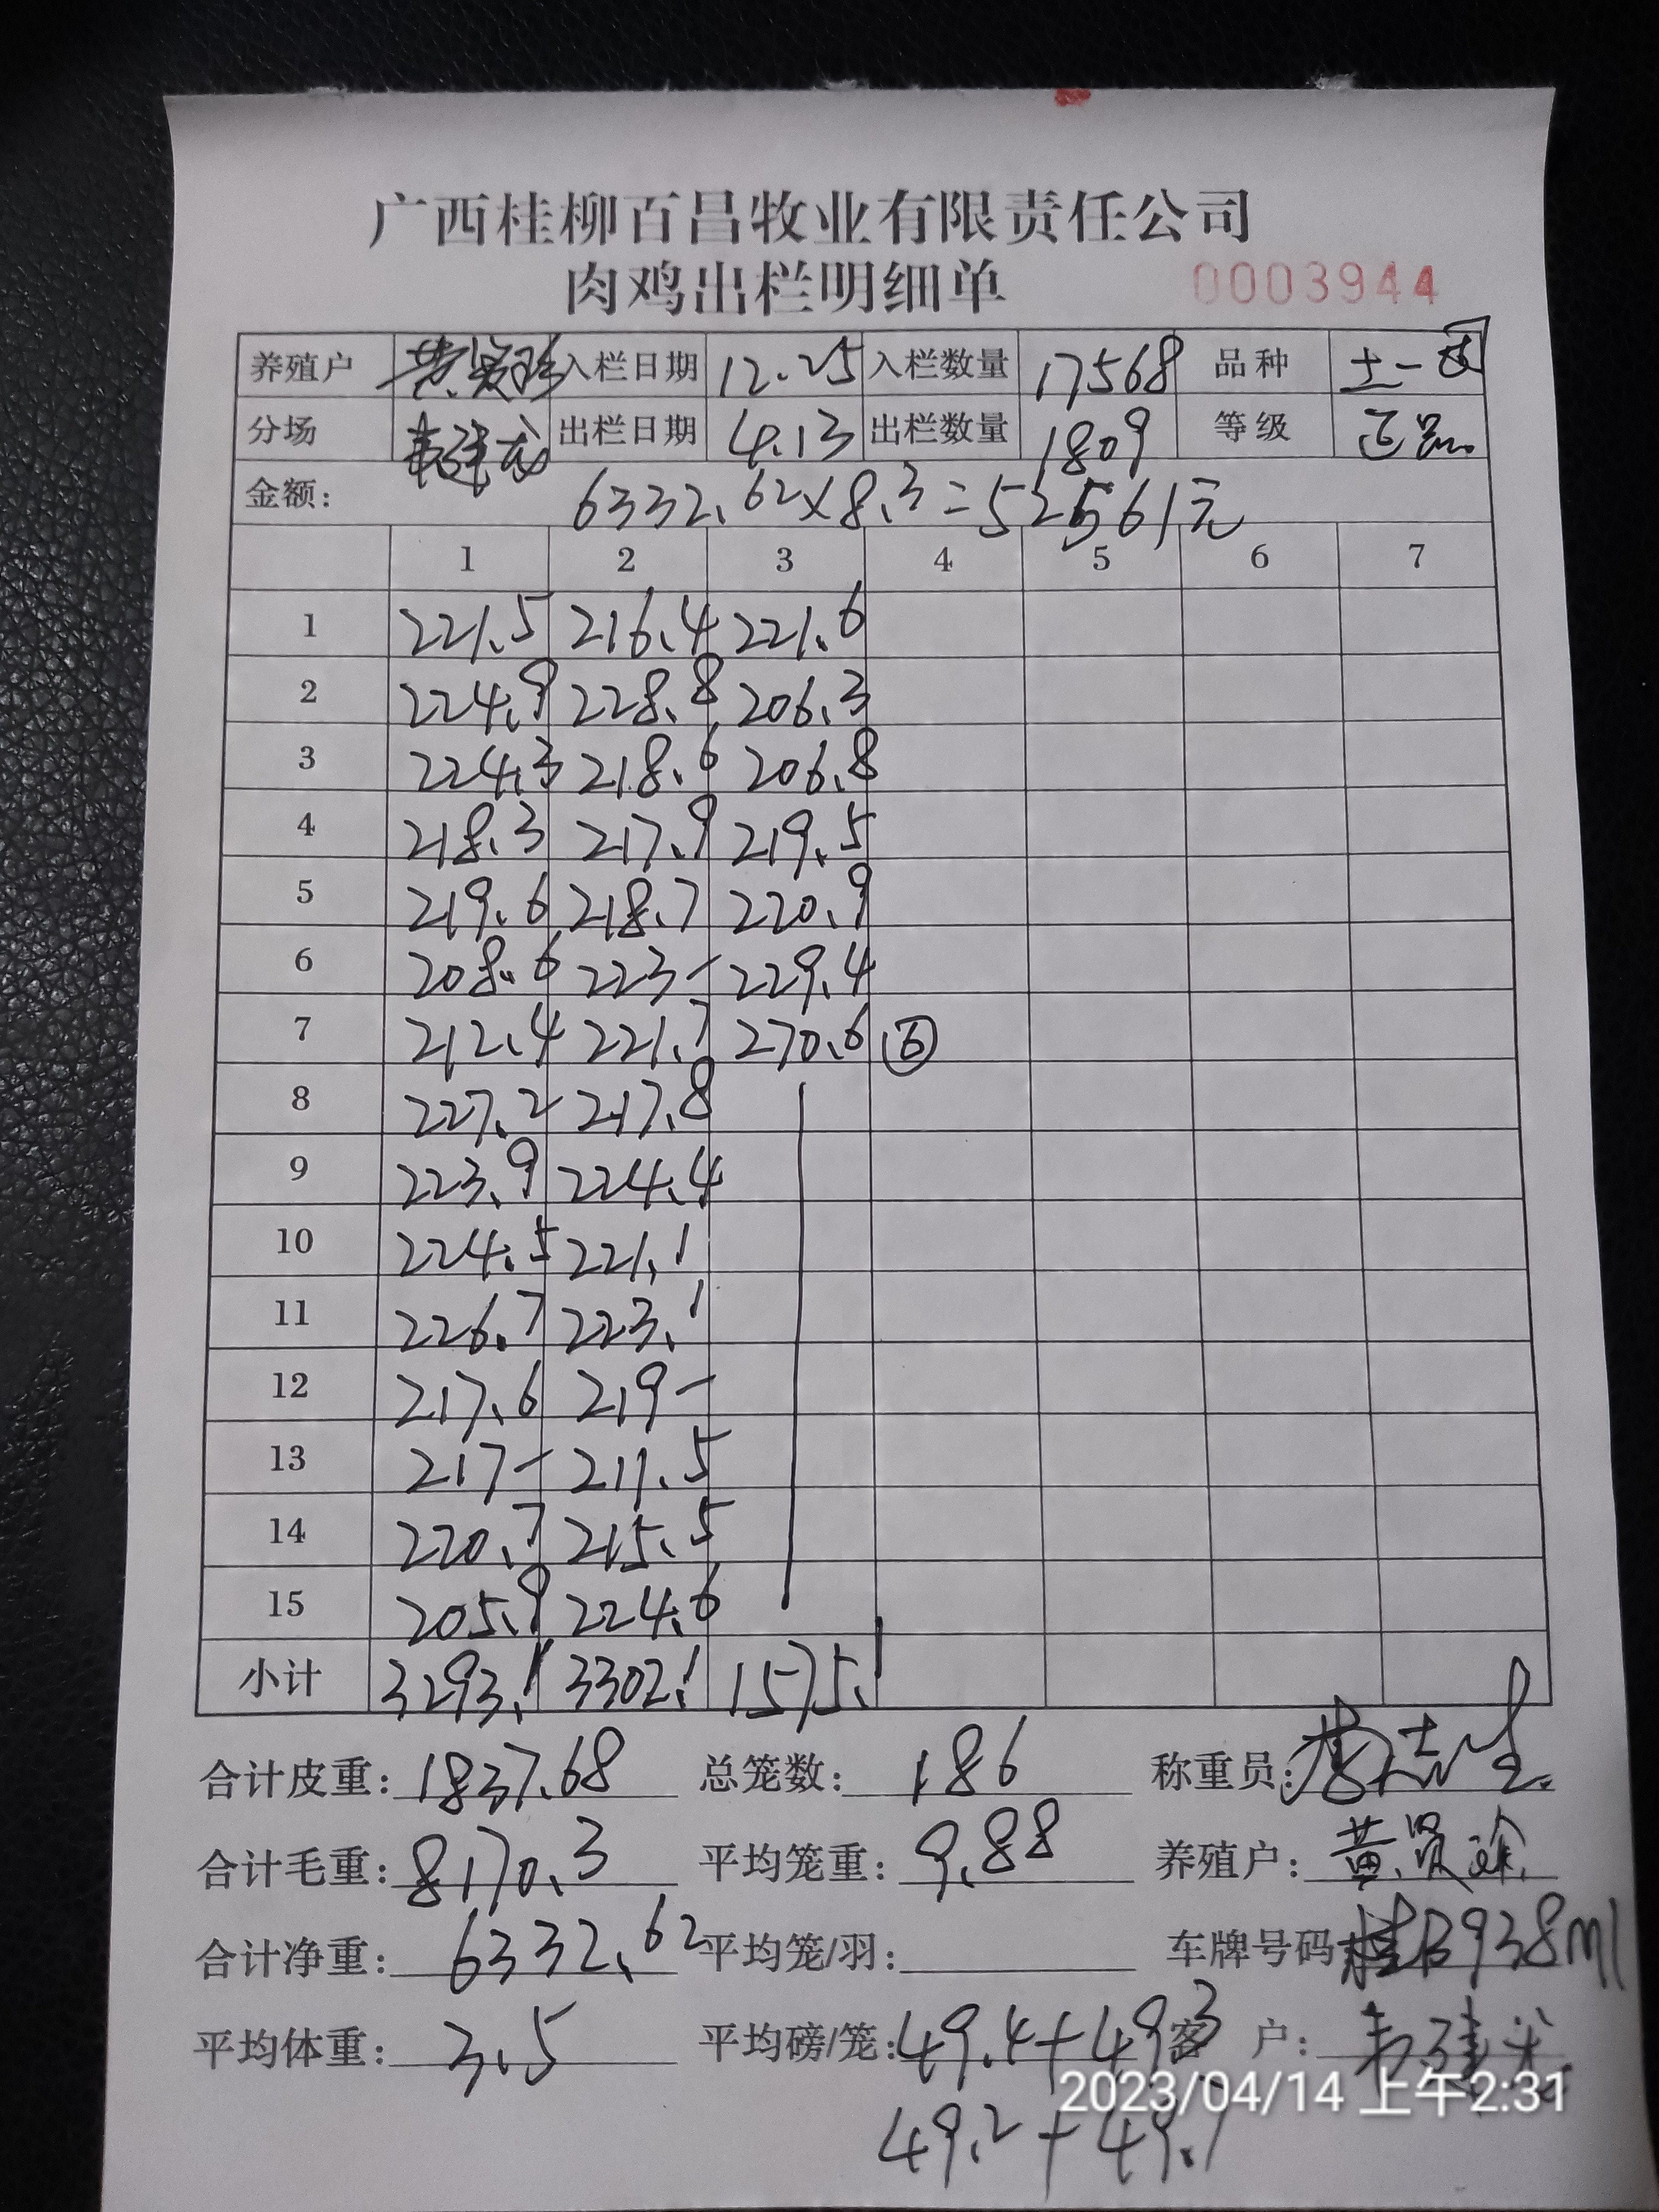 广西桂柳百昌牧业有限责任公司
肉鸡出栏明细单 0003944
养殖户 黄贤珍 入栏日期 12.25 入栏数量 17568 品种 土一
分场 出栏日期 4.13 出栏数量 1809 等级 正品
金额: 6332.62×8.3=52561元
1 2 3 4 5 6 7
1 221.5 216.4 221.6
2 224.9 228.8 206.3
3 224.3 218.6 206.8
4 218.3 217.9 219.5
5 219.6 218.7 220.9
6 208.6 223- 229.4
7 212.4 221.7 270.6 ⑥
8 227.2 217.8
9 223.9 224.4
10 224.5 221.1
11 226.7 223.1
12 217.6 219-
13 217- 211.5
14 220.7 215.5
15 205.9 224.6
小计 3293.1 3302.1 1575.1
合计皮重: 1837.68 总笼数: 186 称重员:
合计毛重: 8170.3 平均笼重: 9.88 养殖户: 黄贤
合计净重: 6332.62 平均笼/羽: 车牌号码 桂B938M1
平均体重: 3.5 平均磅/笼: 49.4+49.3 客户:
2023/04/14 上午2:31
49.2+49.1